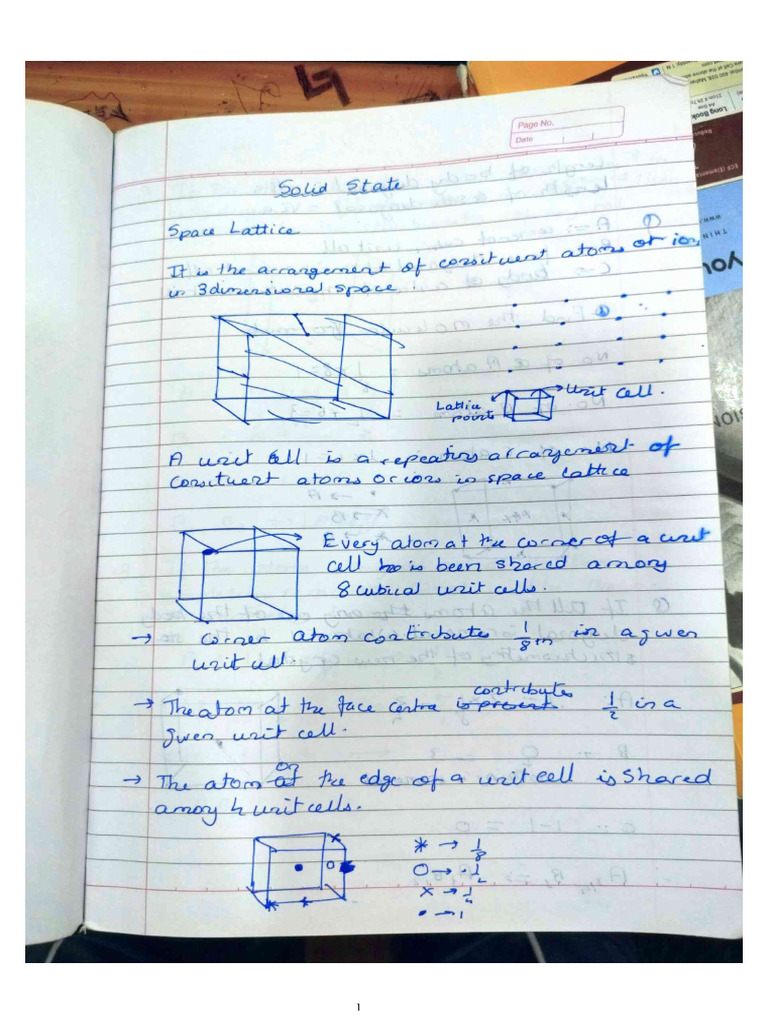 Page No.
Date
Solid State
Space Lattice
It is the arrangement of consituent atoms or ion,
in 3dimensional space.
Unit cell.
Lattice
point
A unit cell is a repeating arrangement of
consituent atoms or ions in space lattice
Every atom at the corner of a unit
cell is been shared among
8 cubical unit cells.
→ corner atom contributes 1/8 in a given
unit cell.
→ The atom at the face centre is present contributes 1/2 in a
given unit cell.
→ The atom at on the edge of a unit cell is shared
among 4 unit cells.
* → 1/8
O → 1/2
x → 1/4
• → 1
Long Book
1